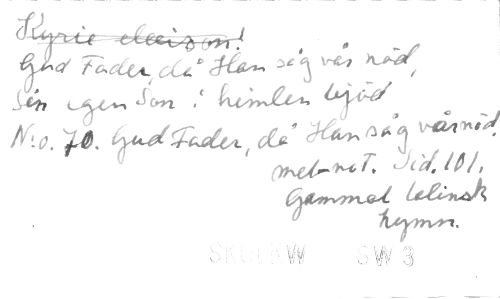 Kyrie eleison!
Gud Fader, då Han såg vår nöd,
Sin egen Son i himlen bjöd
N:o. 70. Gud Fader, då Han såg vår nöd.
mel-not. Sid. 101.
Gammal latinsk
hymn.
SW 3